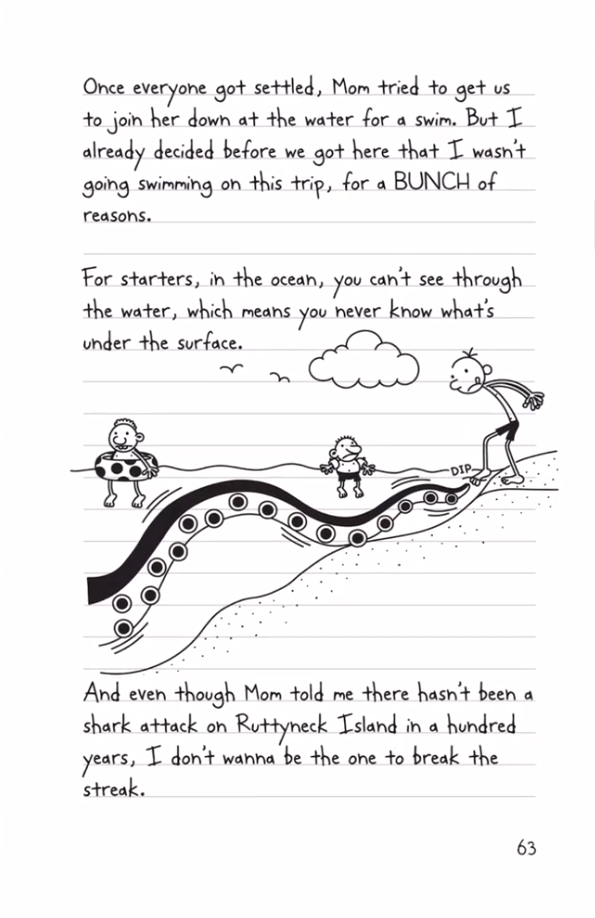 Once everyone got settled, Mom tried to get us
to join her down at the water for a swim. But I
already decided before we got here that I wasn't
going swimming on this trip, for a BUNCH of
reasons.
For starters, in the ocean, you can't see through
the water, which means you never know what's
under the surface.
DIP
And even though Mom told me there hasn't been a
shark attack on Ruttyneck Island in a hundred
years, I don't wanna be the one to break the
streak.
63